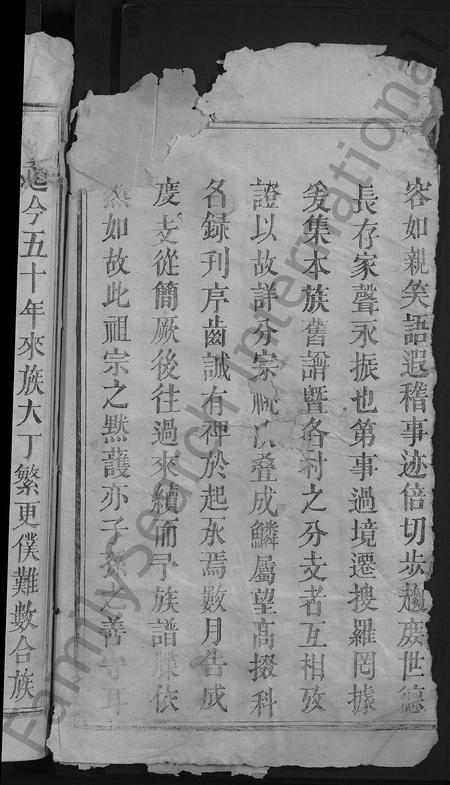 容如親笑語遐稽事迹倍切步趨庶世德
長存家聲永振也第事過境遷搜羅罔據
爰集本族舊譜暨各村之分支者互相攷
證以故詳分宗 叠成鱗屬望高掇科
名録刊序齒誠有裨於起承焉數月告成
度支從簡厥後往過來續而予族譜牒依
然如故此祖宗之黙護亦子孫之善守耳
迄今五十年來族大丁繁更僕難數合族
FamilySearch International